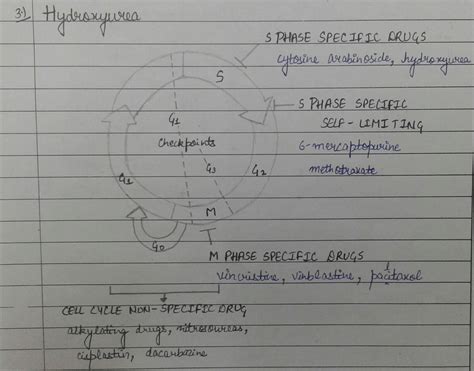 3) Hydroxyurea
S PHASE SPECIFIC DRUGS
cytosine arabinoside, hydroxyurea
S
S PHASE SPECIFIC
SELF-LIMITING
6-mercaptopurine
methotraxate
G1
Checkpoints
G2
G2
G1
M
G0
M PHASE SPECIFIC DRUGS
vincristine, vinblastine, pacitaxol
CELL CYCLE NON-SPECIFIC DRUG
alkylating drugs, nitrosoureas,
cisplastin, dacarbazine